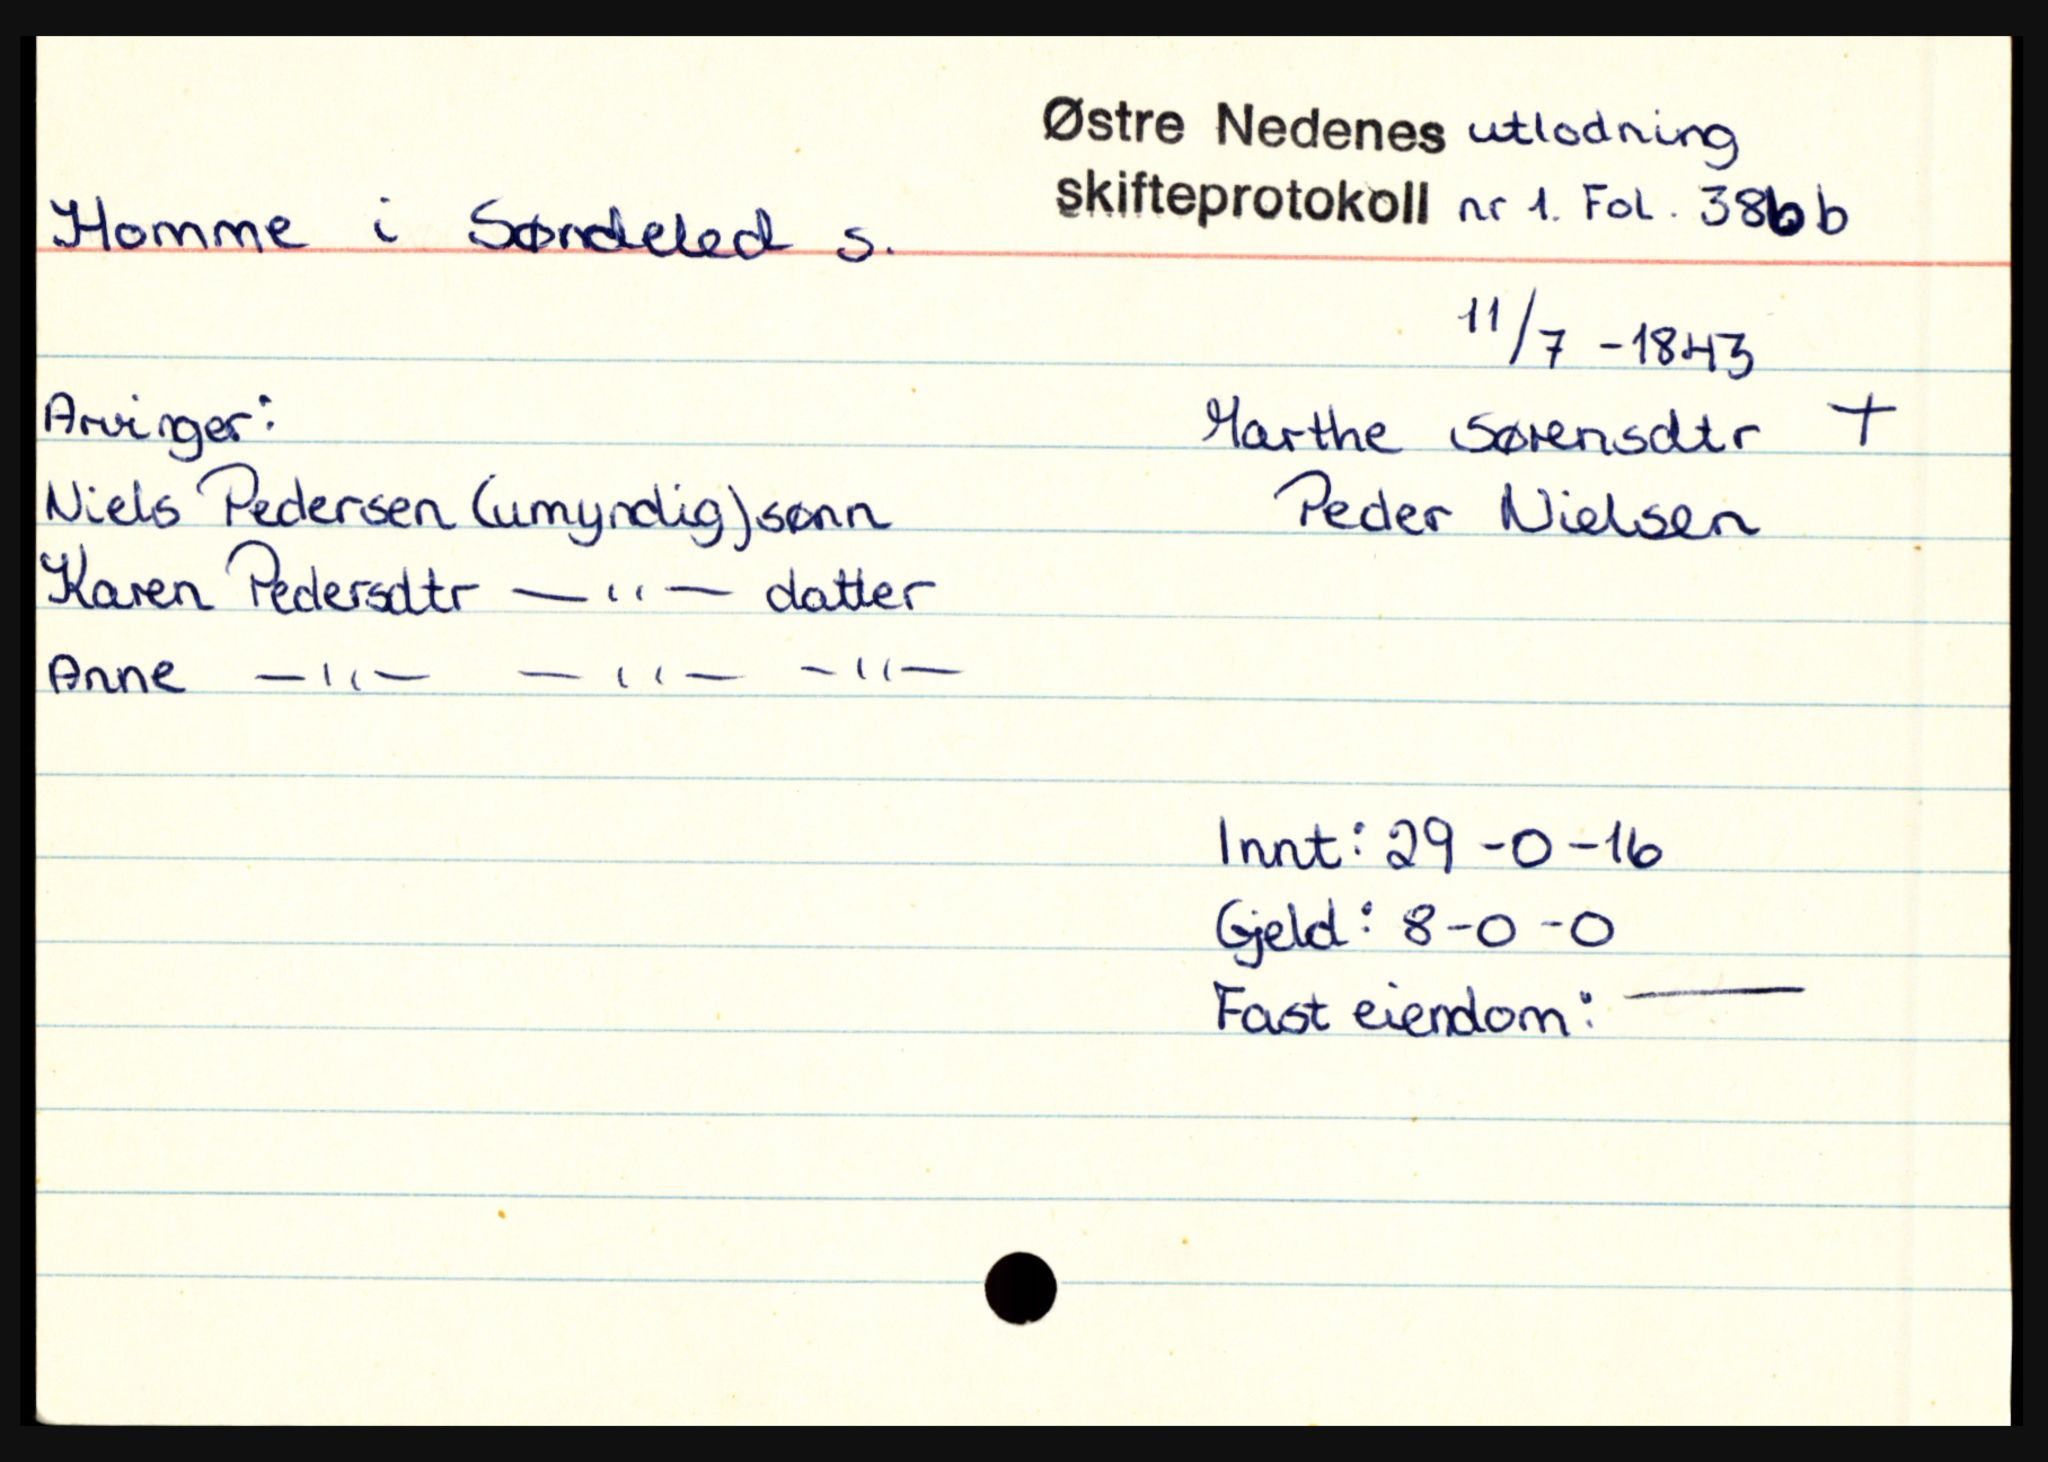 Østre Nedenes utlodning
skifteprotokoll nr 1. Fol. 386 b
Homme i Søndeled s.
11/7 - 1843
Arvinger:
Marthe Sørensdtr +
Niels Pedersen (umyndig) sønn
Peder Nielsen
Karen Pedersdtr — " — datter
Anne — " — — " — — " —
Innt: 29 - 0 - 16
Gjeld: 8 - 0 - 0
Fast eiendom: —